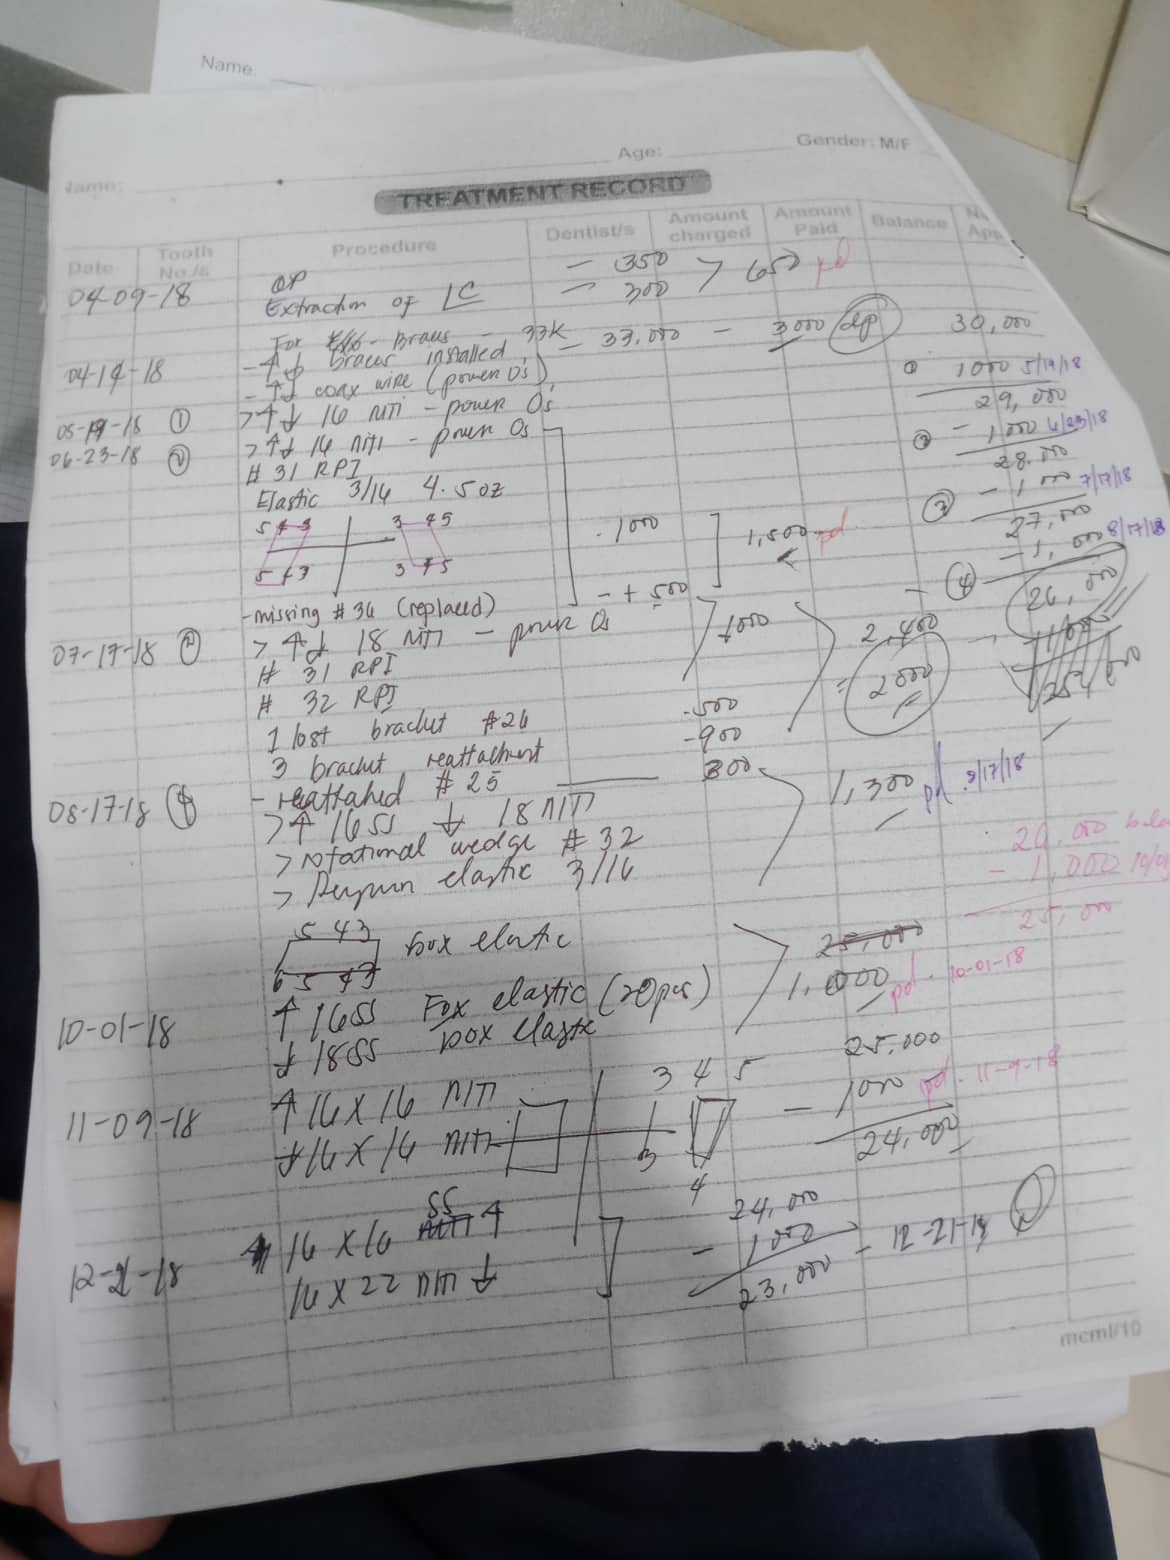 Name:
Name: Age: Gender: M/F
TREATMENT RECORD
Date Tooth No./s Procedure Dentist/s Amount charged Amount Paid Balance App
04-09-18 OP - 350 > 650 pd
Extraction of LC - 300
For Braces - 33K - 33,000 - 3000 dp 30,000
04-14-18 - ↑↓ braces installed
- ↑↓ coax wire (power Os)
① 1000 5/19/18
29,000
05-19-18 ① > ↑↓ 16 NiTi - power Os
06-23-18 ② > ↑↓ 16 NiTi - power Os
② - 1,000 6/23/18
28,000
# 31 RPI
Elastic 3/16 4.5 oz
③ - 1000 7/17/18
27,000
5 4 3 3 4 5
5 4 3 3 4 5
- 1000 ] 1,500 pd
- + 500
④ - 1,000 8/17/18
26,000
- missing # 36 (replaced)
07-17-18 > ↑↓ 18 NiTi - power Os 1000 2,400
# 31 RPI = 2000
# 32 RPI
1 lost bracket #26 -500
3 bracket reattachment -900
08-17-18 ④ - reattached # 25 300 1,300 pd. 8/17/18
> ↑ 16 SS ↓ 18 NiTi
> rotational wedge # 32
> elastic 3/16
26,000
- 1,000
25,000
5 4 3 box elastic
6 5 4 3
25,000
1,000 pd. 10-01-18
10-01-18 ↑ 16SS Fox elastic (20pcs)
↓ 18SS box elastic
25,000
11-09-18 ↑ 16 X 16 NiTi 3 4 5 - 1000 pd. 11-9-18
↓ 16 X 16 NiTi 3 24,000
4
12-21-18 16 X 16 SS NiTi ↑ 24,000
16 X 22 NiTi ↓ - 1000 - 12-21-18
23,000
mcml/10